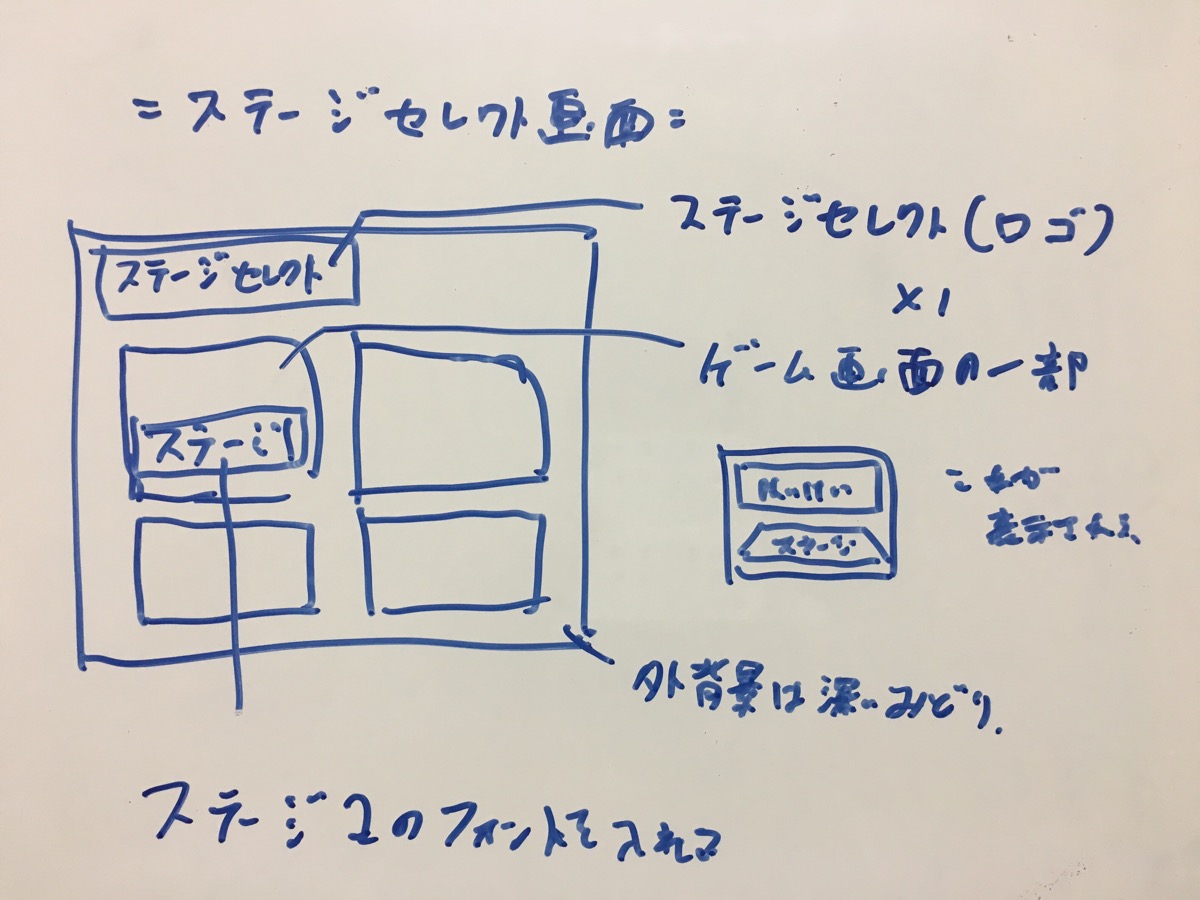 =ステージセレクト画面=
ステージセレクト(ロゴ)
×1
ステージセレクト
ゲーム画面の一部
ステージ1
これが
表示される
ステージ
外背景は深いみどり.
ステージ2のフォントを入れる